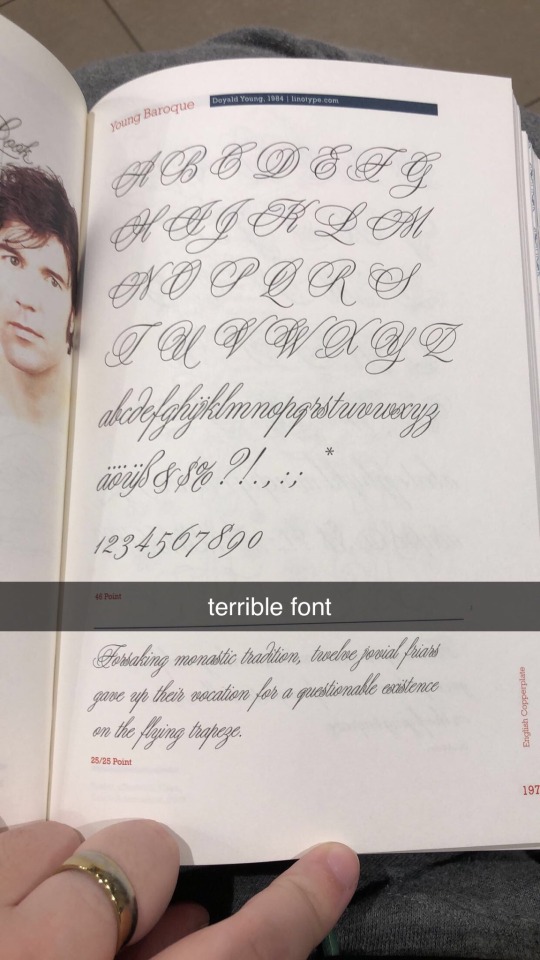 Look
Young Baroque
Doyald Young, 1984 | linotype.com
A B C D E F G
H I J K L M
N O P Q R S
T U V W X Y Z
abcdefghijklmnopqrstuvwxyz
äöüß&$%?!.,:;*
1234567890
48 Point
terrible font
Forsaking monastic tradition, twelve jovial friars
gave up their vocation for a questionable existence
on the flying trapeze.
25/25 Point
English Copperplate
197